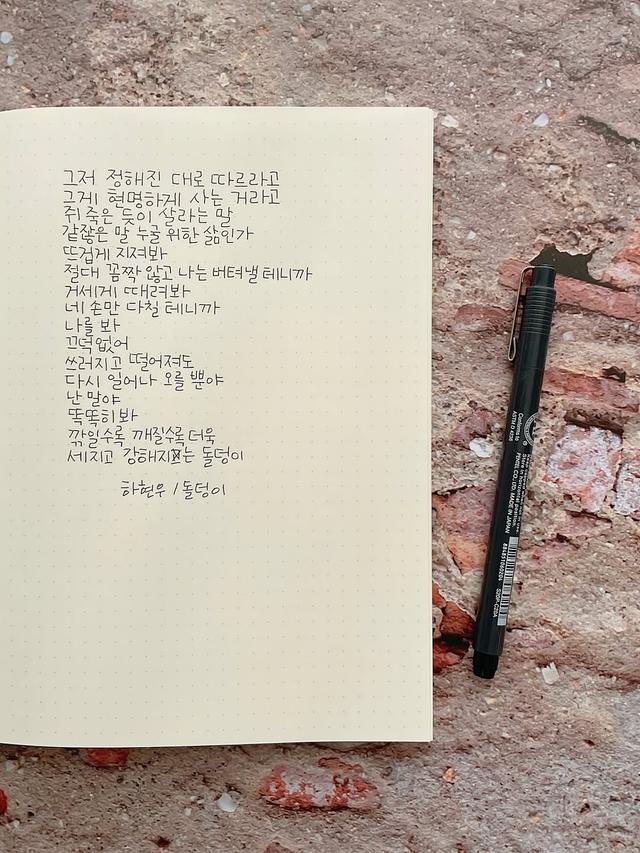 그저 정해진 대로 따르라고
그게 현명하게 사는 거라고
쥐 죽은 듯이 살라는 말
같잖은 말 누굴 위한 삶인가
뜨겁게 지져봐
절대 꼼짝 않고 나는 버텨낼 테니까
거세게 때려봐
네 손만 다칠 테니까
나를 봐
끄떡없어
쓰러지고 떨어져도
다시 일어나 오를 뿐야
난 말야
똑똑히 봐
깎일수록 깨질수록 더욱
세지고 강해지는 돌덩이
하현우 / 돌덩이
Conforms to
ASTM D 4236
Store in horizontal position.
PENTEL CO., LTD. MADE IN JAPAN